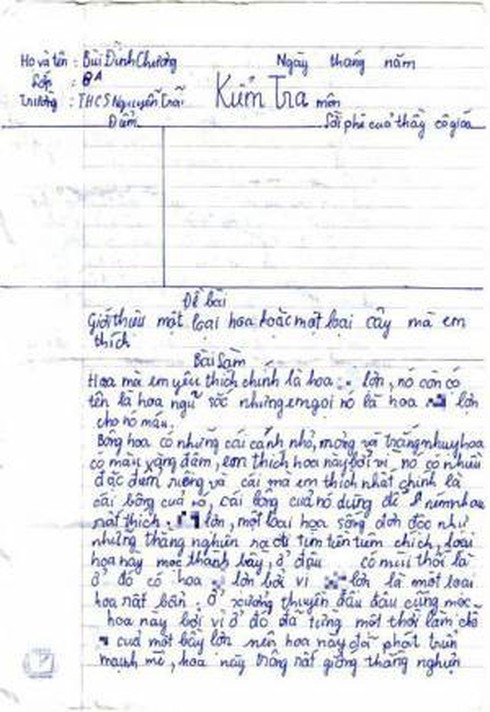 Họ và tên : Bùi Đình Chương
Ngày tháng năm
Lớp : 8A
Trường : THCS Nguyễn Trãi
Kiểm Tra môn
Điểm
Lời phê của thầy cô giáo
Đề bài
Giới thiệu một loại hoa hoặc một loại cây mà em
thích
Bài Làm
Hoa mà em yêu thích chính là hoa lợn, nó còn có
tên là hoa ngũ sắc nhưng em gọi nó là hoa lợn
cho nó máu.
Bông hoa có những cái cánh nhỏ, mỏng và trắng nhụy hoa
có màu vàng đậm, em thích hoa này bởi vì nó có nhiều
đặc điểm riêng và cái mà em thích nhất chính là
cái bông của nó, cái bông của nó dùng để ném nhau
rất thích. lợn, một loại hoa sống đơn độc như
những thằng nghiện ra đi tìm tên tiêm chích, loài
hoa này mọc thành bầy, ở đâu có mùi thối là
ở đó có hoa lợn bởi vì lợn là một loại
hoa rất bẩn. Ở xưởng thuyền đâu đâu cũng mọc
hoa này bởi vì ở đó đã từng một thời làm chỗ
của một bầy lợn nên hoa này đã phát triển
mạnh mẽ, hoa này trông rất giống thằng nghiện